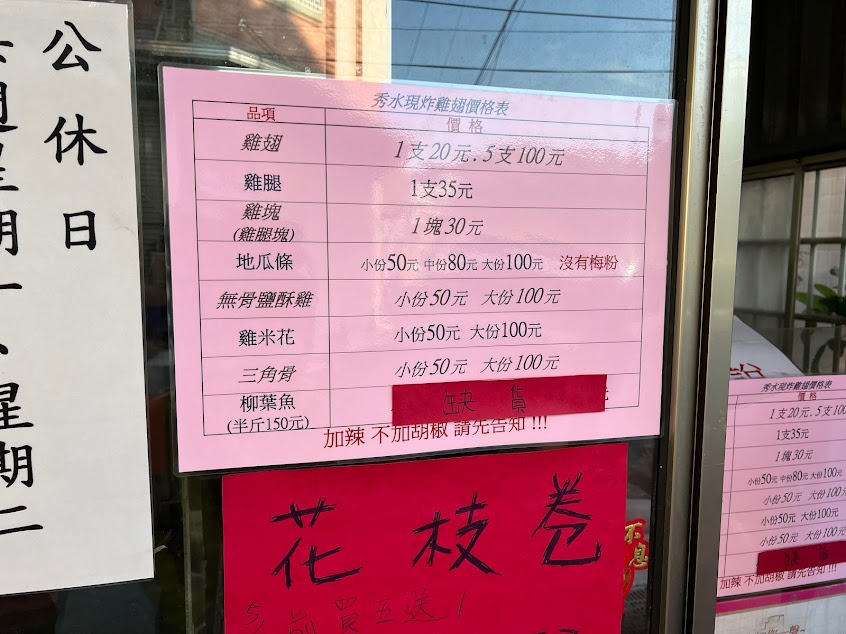 公休日
每週星期一、星期二
秀水現炸雞翅價格表
品項 價格
雞翅 1支20元.5支100元
雞腿 1支35元
雞塊 1塊30元
(雞腿塊)
地瓜條 小份50元 中份80元 大份100元 沒有梅粉
無骨鹽酥雞 小份50元 大份100元
雞米花 小份50元 大份100元
三角骨 小份50元 大份100元
柳葉魚 缺貨 元
(半斤150元)
加辣 不加胡椒 請先告知 !!!
花枝卷
買五送1
不息
秀水現炸雞翅價格表
價格
1支20元.5支100
1支35元
1塊30元
小份50元 中份80元 大份100元
小份50元 大份100元
小份50元 大份100元
小份50元 大份100元
缺貨
加辣 不加胡椒 請先告知 !!!